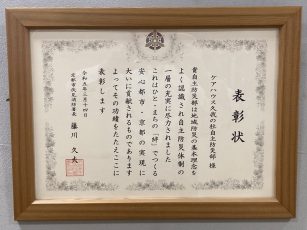 表彰状
ケアハウス久我の杜自主防災部 様
貴自主防災部は地域防災の基本理念を
よく認識され自主防災体制の
一層の充実に尽力されました
これはひと・まちの「絆」でつくる
安心都市・京都の実現に
大いに貢献されるものであります
よってその功績をたたえここに
表彰します
令和元年三月十四日
京都市伏見消防署長 藤川 久大